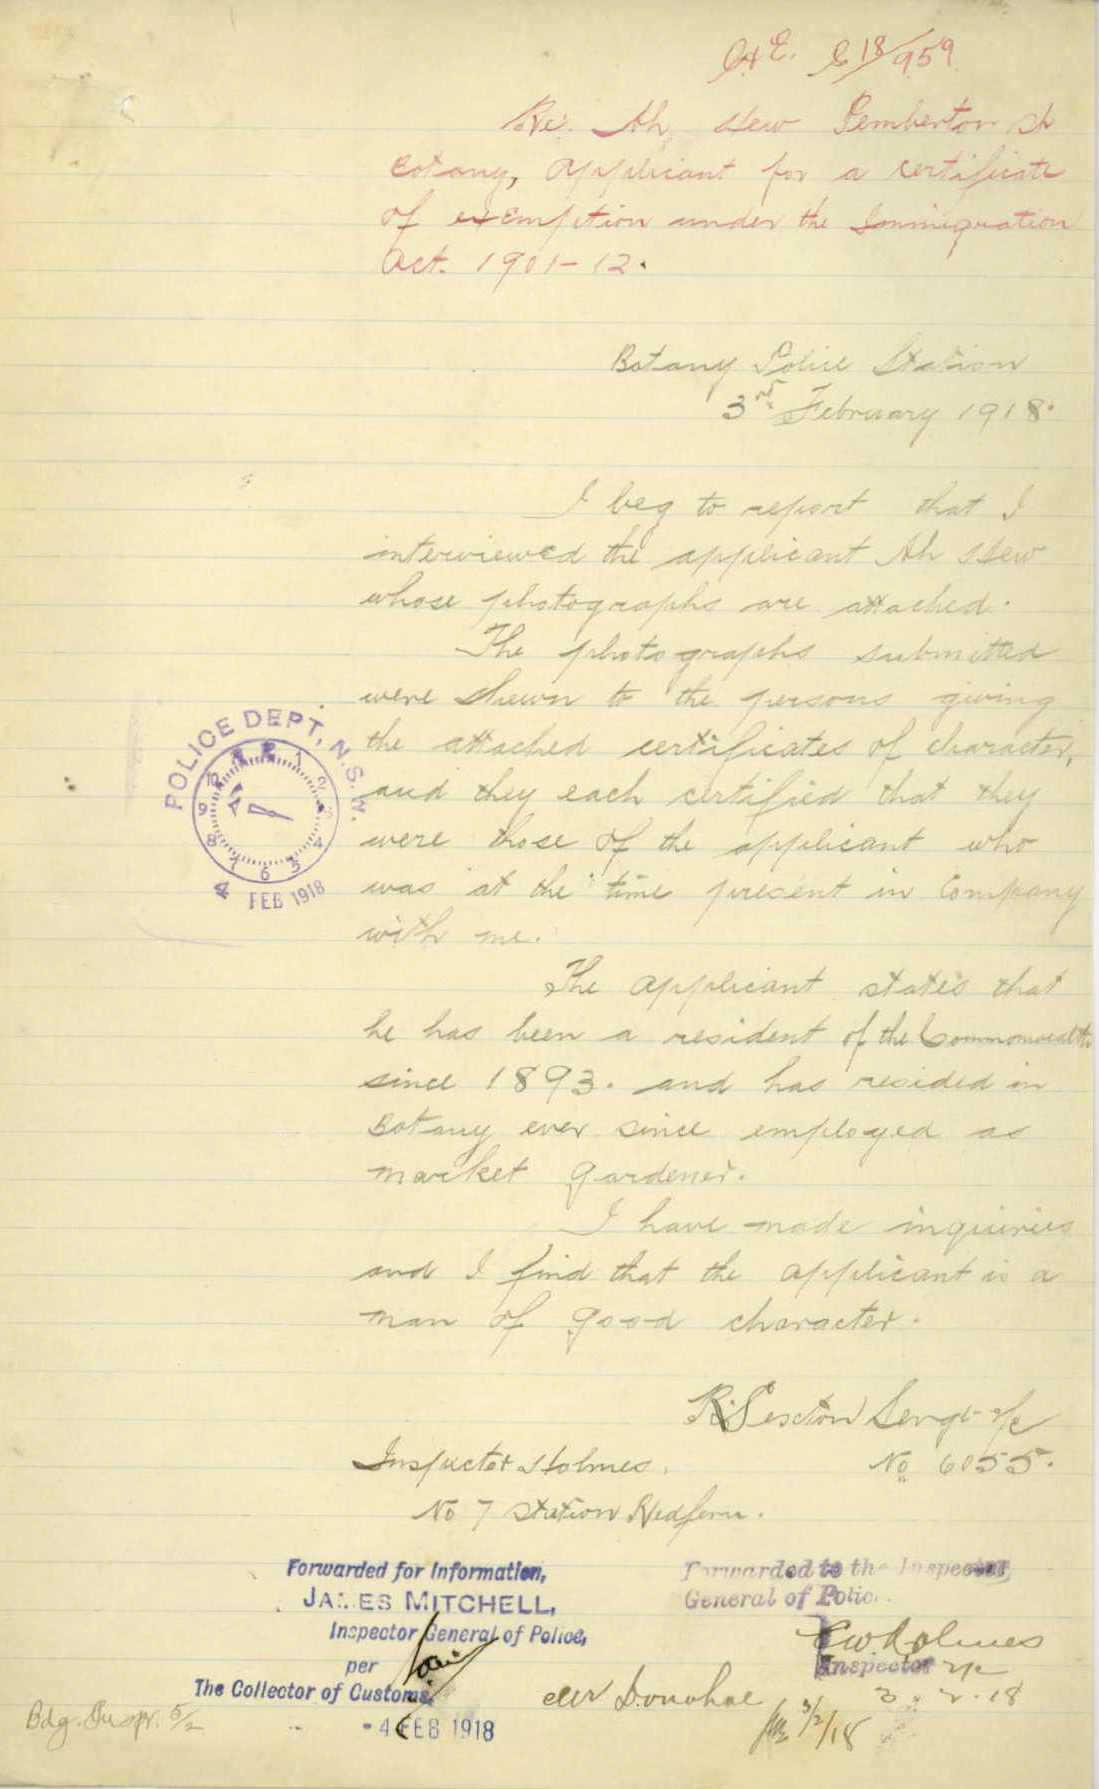 C18/959
Re. Ah Hew Pemberton St
Botany, Applicant for a certificate
of exemption under the Immigration
Act. 1901-12.
Botany Police Station
3rd February 1918.
I beg to report that I
interviewed the applicant Ah Hew
whose photographs are attached.
The photographs submitted
were shewn to the persons giving
the attached certificates of character,
and they each certified that they
were those of the applicant who
was at the time present in Company
with me.
The applicant states that
he has been a resident of the Commonwealth
since 1893. and has resided in
Botany ever since employed as
market gardener.
I have made inquiries
and I find that the applicant is a
man of good character.
POLICE DEPT, N.S.W.
4 FEB 1918
R Sexton Sergt o/c
No 6055.
Inspector Holmes.
No 7 Station Redfern.
Forwarded for Information,
JAMES MITCHELL,
Inspector General of Police,
per
The Collector of Customs.
-4 FEB 1918
Forwarded to the Inspector
General of Police.
Holmes
Inspector
3.2.18
Mr Donohoe
3/2/18
Bdg. Inspr. 5/2